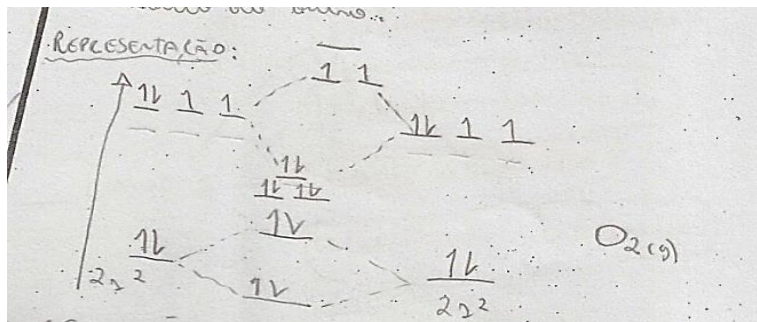 REPRESENTAÇÃO:
1L 1 1
1 1
1L 1 1
1L
1L 1L
1L
1L
1L
1L
O2(g)
2s²
2s²